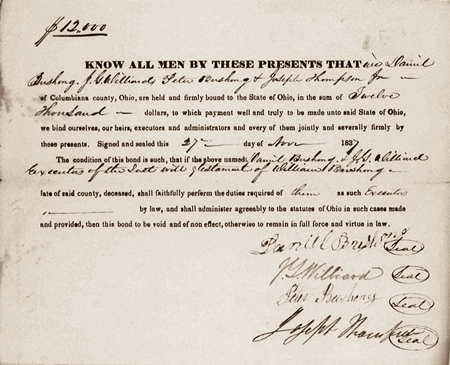 $12,000
KNOW ALL MEN BY THESE PRESENTS THAT we Daniel
Bushong, J. G. Williard, Peter Bushong & Joseph Thompson Jr
of Columbiana county, Ohio, are held and firmly bound to the State of Ohio, in the sum of Twelve
Thousand — dollars, to which payment well and truly to be made unto said State of Ohio,
we bind ourselves, our heirs, executors and administrators and every of them jointly and severally firmly by
these presents. Signed and sealed this 27 day of Nov 1837
The condition of this bond is such, that if the above named Daniel Bushong & J. G. Williard
Executors of the Last will & testament of William Bushong
late of said county, deceased, shall faithfully perform the duties required of them as such Executors
by law, and shall administer agreeably to the statutes of Ohio in such cases made
and provided, then this bond to be void and of none effect, otherwise to remain in full force and virtue in law.
Daniel Bushong Seal
J G Williard Seal
Peter Bushong Seal
Seal